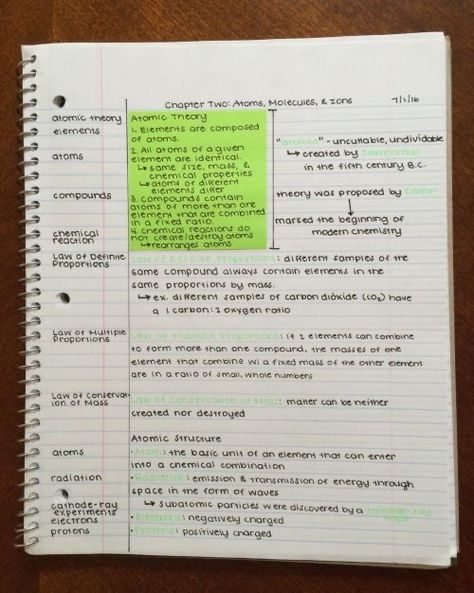 Chapter Two: Atoms, Molecules, & Ions 7/1/16
atomic theory
elements
atoms
compounds
chemical
reaction
Atomic Theory
1. Elements are composed
of atoms.
2. All atoms of a given
element are identical.
↳ same size, mass, &
chemical properties
↳ atoms of different
elements differ
3. Compounds contain
atoms of more than one
element that are combined
in a fixed ratio.
4. Chemical reactions do
not create/destroy atoms
↳ rearranges atoms
"atomos" - uncuttable, undividable
↳ created by Democritus
in the fifth century B.C.
theory was proposed by Dalton
↓
marked the beginning of
modern chemistry
Law of Definite
Proportions
Law of Definite Proportions: different samples of the
same compound always contain elements in the
same proportions by mass.
↳ ex. different samples of carbon dioxide (CO₂) have
a 1 carbon: 2 oxygen ratio
Law of Multiple
Proportions
Law of Multiple Proportions: if 2 elements can combine
to form more than one compound, the masses of one
element that combine w/ a fixed mass of the other element
are in a ratio of small, whole numbers
Law of Conservat-
ion of Mass
Law of Conservation of Mass: matter can be neither
created nor destroyed
Atomic Structure
atoms
• Atom: the basic unit of an element that can enter
into a chemical combination
radiation
• Radiation: emission & transmission of energy through
space in the form of waves
cathode-ray
experiments
↳ subatomic particles were discovered by a cathode-ray
tube
electrons
• Electrons: negatively charged
protons
• Protons: positively charged